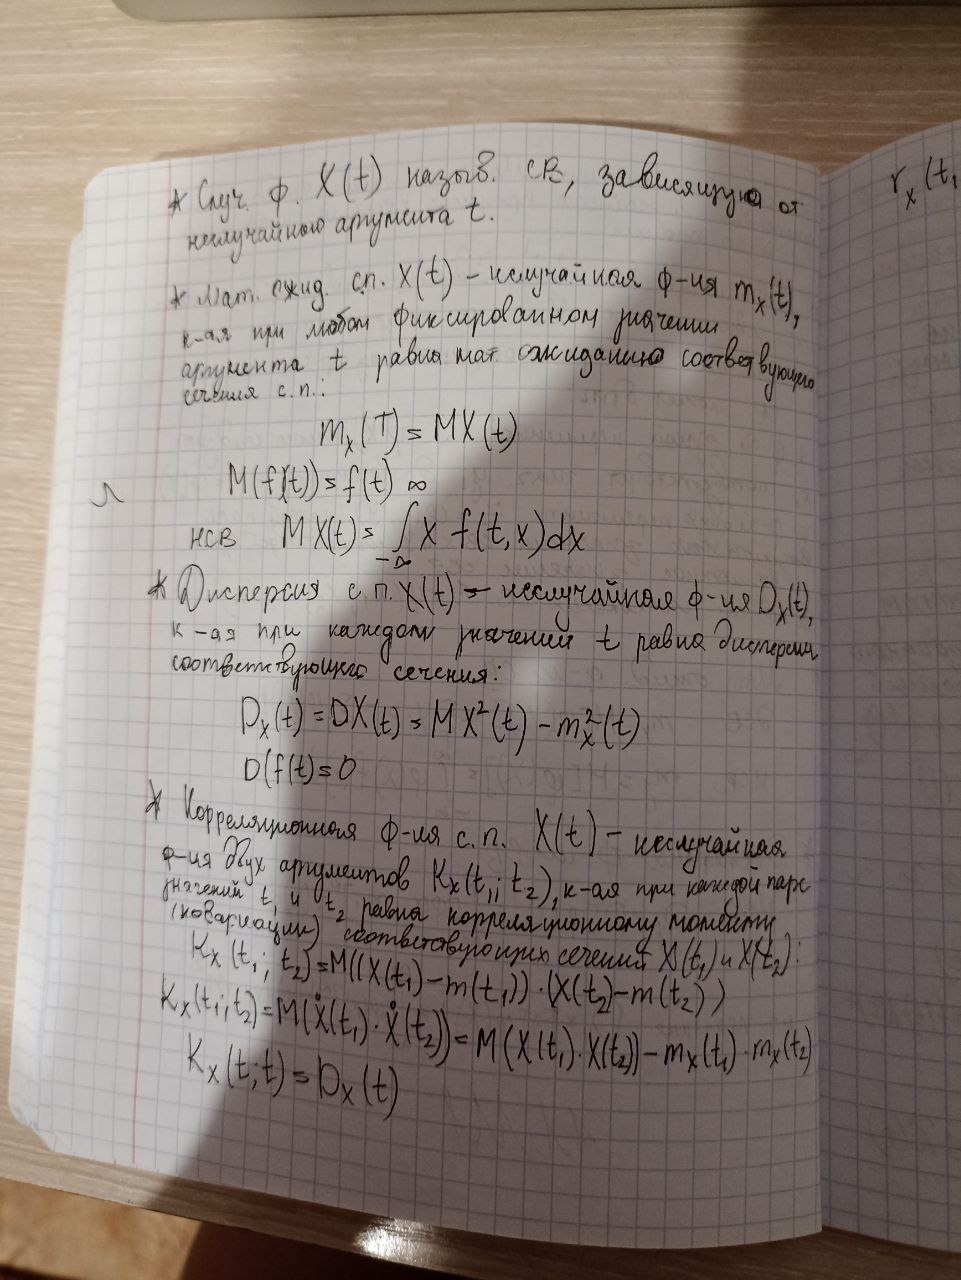 * Случ. ф. X(t) назыв. СВ, зависящую от
неслучайного аргумента t.
* Мат. ожид с.п. X(t) – неслучайная ф-ия mₓ(t),
к-ая при любом фиксированном значении
аргумента t равна мат ожиданию соответствующего
сечения с.п.:
mₓ(T) = MX(t)
M(f(t)) = f(t)
НСВ MX(t) = ∫_{-∞}^{∞} x f(t,x)dx
* Дисперсия с.п. X(t) – неслучайная ф-ия Dₓ(t),
к-ая при каждом значении t равна дисперсии
соответствующего сечения:
Dₓ(t) = DX(t) = MX²(t) – mₓ²(t)
D(f(t) = 0
* Корреляционная ф-ия с.п. X(t) – неслучайная
ф-ия двух аргументов Kₓ(t₁; t₂), к-ая при каждой паре
значений t₁ и t₂ равна корреляционному моменту
(ковариации) соответствующих сечений X(t₁) и X(t₂):
Kₓ(t₁; t₂) = M((X(t₁) – m(t₁)) · (X(t₂) – m(t₂))
Kₓ(t₁; t₂) = M(X̊(t₁) · X̊(t₂)) = M(X(t₁) · X(t₂)) – mₓ(t₁) · mₓ(t₂)
Kₓ(t; t) = Dₓ(t)
rₓ(t₁